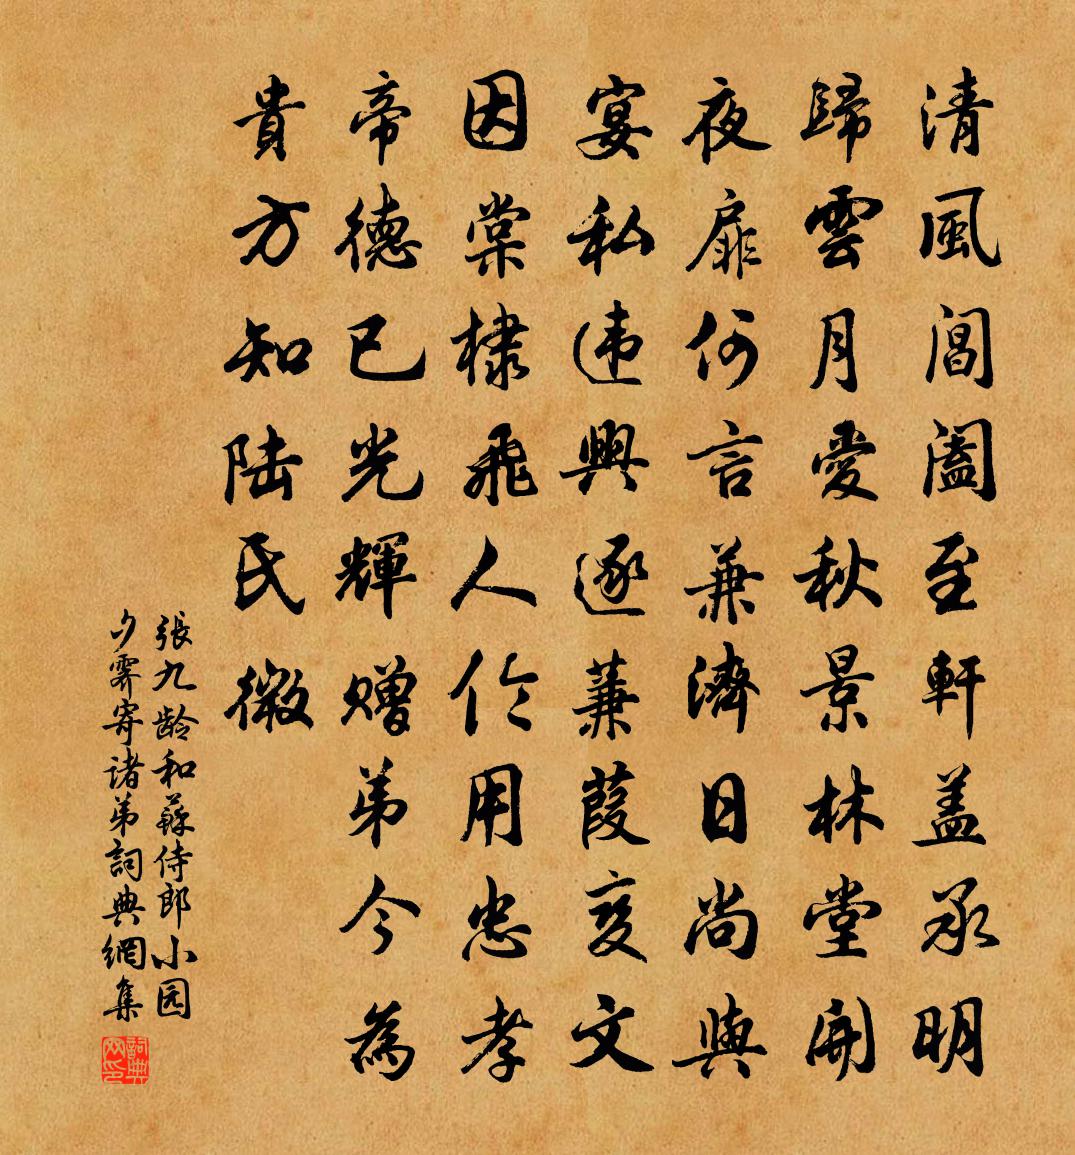 清風閶闔至軒盖承明
歸雲月愛秋景林堂開
夜扉何言兼濟日尚與
宴私違興逐蒹葭變文
因棠棣飛人倫用忠孝
帝德已光輝贈弟今為
貴方知陸氏微
張九龄和蘇侍郎小园
夕霽寄诸弟詞典網集
詞典
网印